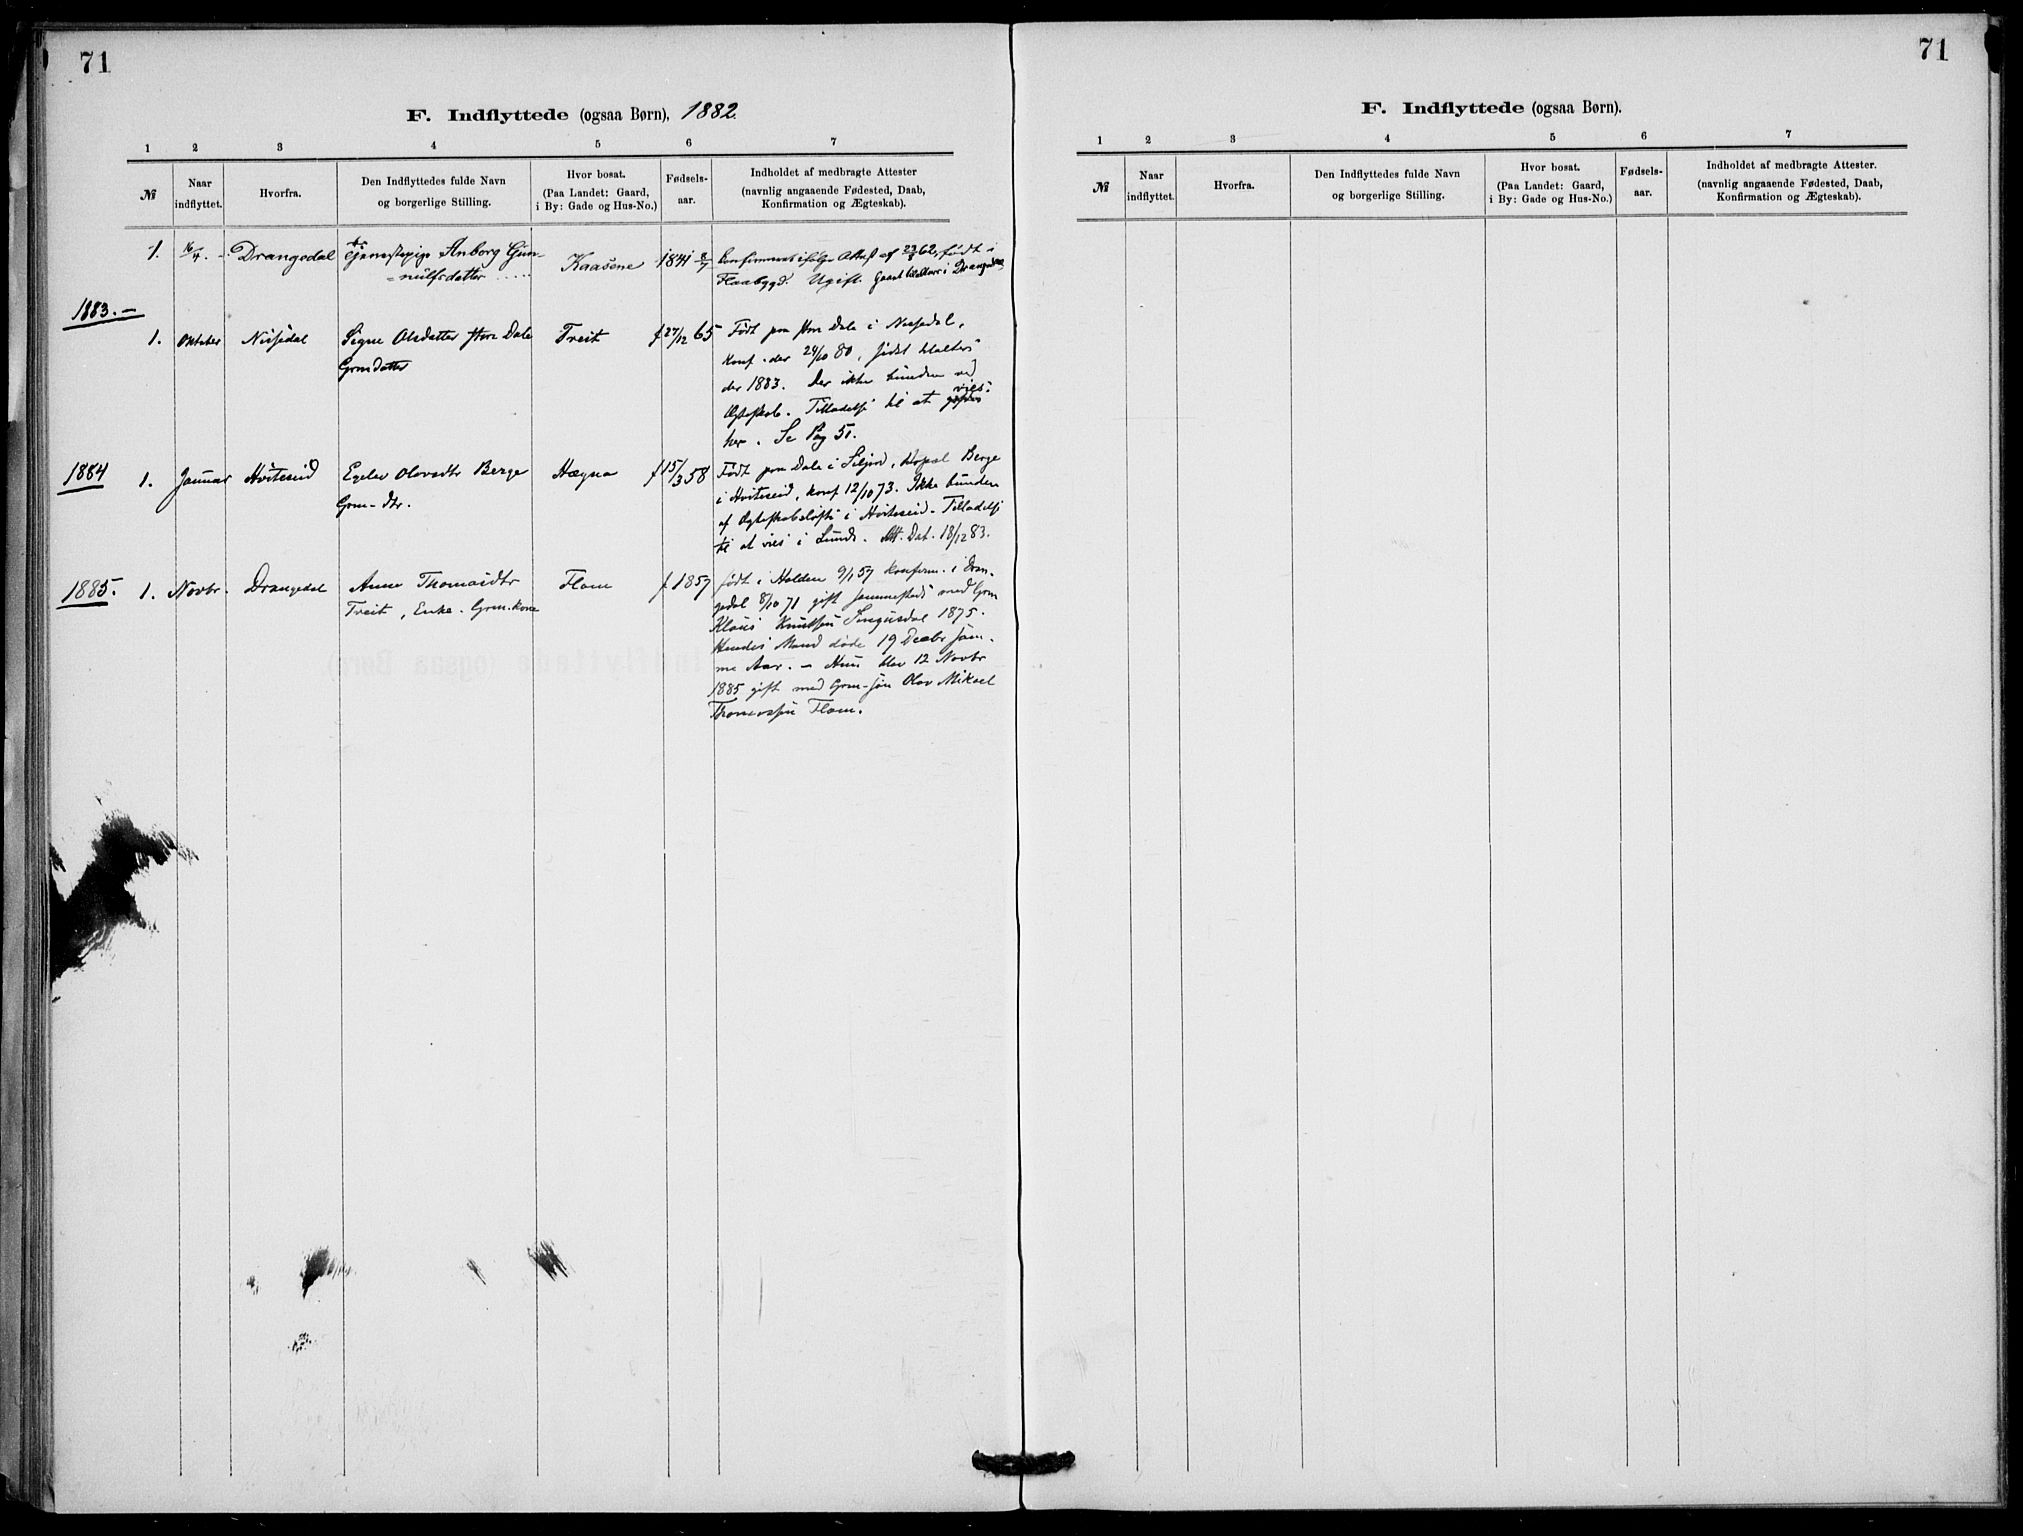 71
F. Indflyttede (ogsaa Børn), 1882.
1 2 3 4 5 6 7
№
Naar
indflyttet.
Hvorfra.
Den Indflyttedes fulde Navn
og borgerlige Stilling.
Hvor bosat.
(Paa Landet: Gaard,
i By: Gade og Hus-No.)
Fødsels-
aar.
Indholdet af medbragte Attester
(navnlig angaaende Fødested, Daab,
Konfirmation og Ægteskab).
1. 16/4 - Drangedal
Tjenestepige Anborg Gun-
=nulfsdatter
Kaasene
1841 8/7
Confirmeret ifølge Attest af 62, født i
Flaabygd. Ugift. i Drangedal
1883. -
1. Oktober Nissedal
Signe Olsdatter Dale
Grmdatter
Treit
f 27/12 65
Født paa Dale i Nissedal,
konf. der 24/10 80,
der 1883. Der ikke bunden ved
Ægteskab. Tilladelse til at vies
her. Se Pag 51.
1884
1. Januar Hviteseid
Egelev Olavsdtr Berge
Grm-dtr.
Hægna
f 15/3 58
Født paa Dale i Siljord, Berge
i Hviteseid, konf 12/10 73. Ikke bunden
af Ægteskabsløfte i Hviteseid. Tilladelse
til at vies i Lunde. Att. Dat. 18/12 83.
1885.
1. Novbr. Drangedal
Anne Thomasdtr
Treit, Enke. Grm.kone
Flom
f 1857
født i Holden 9/1 57 konfirm. i Dran-
gedal 8/10 71 gift sammesteds med Grm
Klaus Knutsen 1875.
Hendes Mand døde 19 Decbr sam-
me Aar. - Hun blev 12 Novbr
1885 gift med Grm-søn Olav Mikael
Thomassen Flom.
71
F. Indflyttede (ogsaa Børn).
1 2 3 4 5 6 7
№
Naar
indflyttet.
Hvorfra.
Den Indflyttedes fulde Navn
og borgerlige Stilling.
Hvor bosat.
(Paa Landet: Gaard,
i By: Gade og Hus-No.)
Fødsels-
aar.
Indholdet af medbragte Attester.
(navnlig angaaende Fødested, Daab,
Konfirmation og Ægteskab).